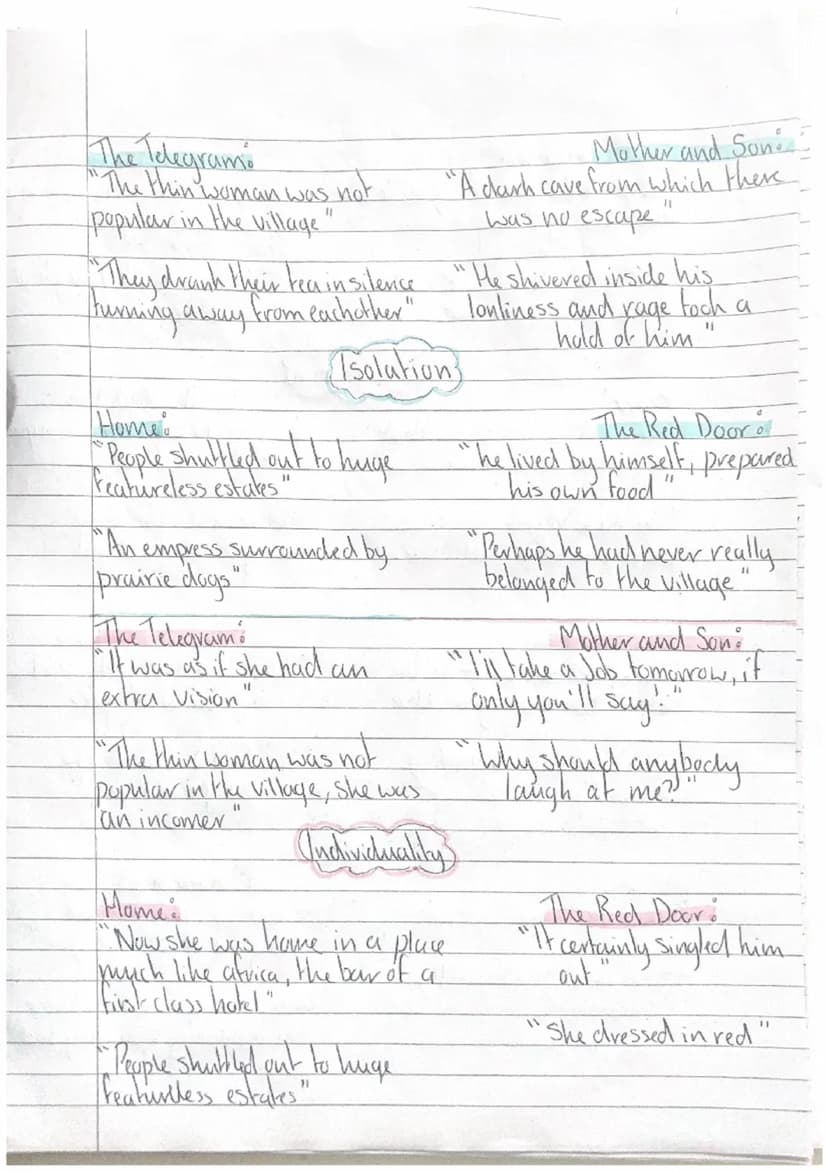 The Telegram:
"The thin woman was not
popular in the village"
"They drank their tea in silence
turning away from eachother"
Mother and Son:
"A dark cave from which there
was no escape"
"He shivered inside his
lonliness and rage took a
hold of him"
Isolation
Home:
"People shuttled out to huge
featureless estates"
"An empress surrounded by
prairie dogs"
The Red Door:
"he lived by himself, prepared
his own food"
"Perhaps he had never really
belonged to the village"
The Telegram:
"It was as if she had an
extra vision"
"The thin woman was not
popular in the village, she was
an incomer"
Mother and Son:
"I'll take a Job tomorrow, if
only you'll say!"
"Why should anybody
laugh at me?"
Individuality
Home:
"Now she was home in a place
much like africa, the bar of a
first class hotel"
"People shuttled out to huge
featurless estates"
The Red Door:
"It certainly singled him
out"
"She dressed in red"